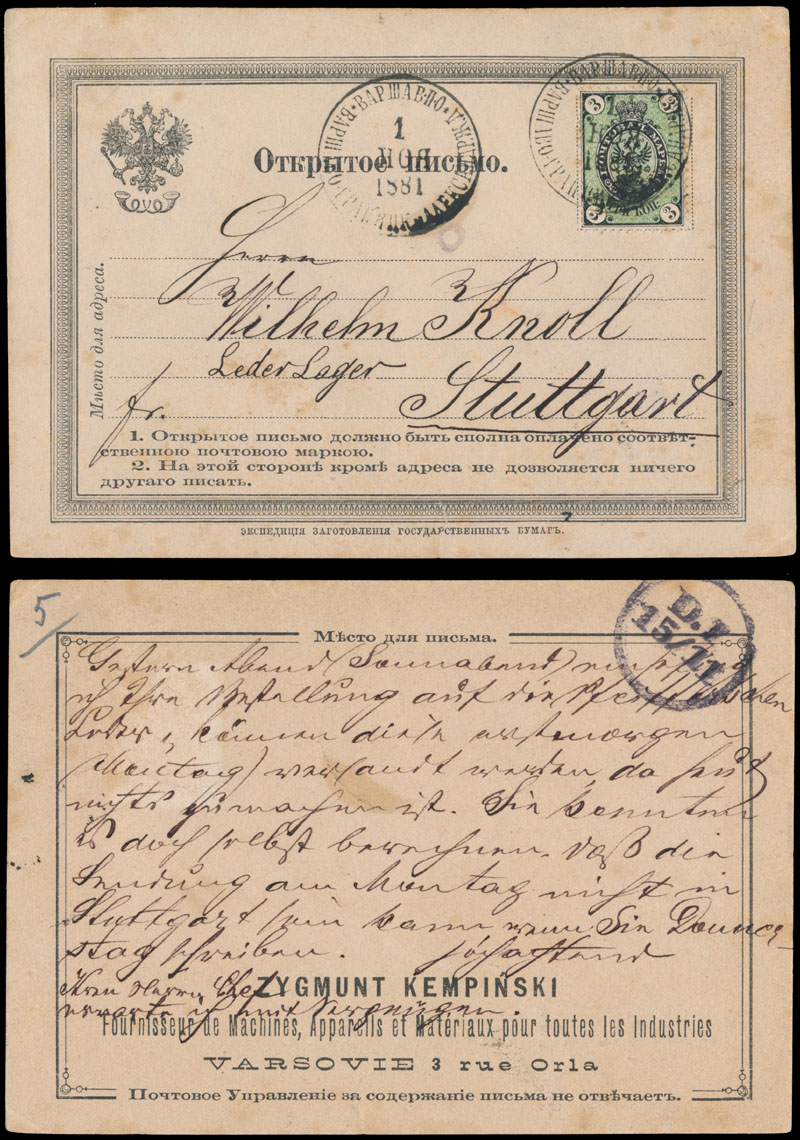 Открытое письмо.
ВАРШАВО
1
НОЯ
1881
3 3
3 3
Мѣсто для адреса.
Herrn
Wilhelm Knoll
Leder Lager
fr. Stuttgart
1. Открытое письмо должно быть сполна оплачено соотвѣт-
ственною почтовою маркою.
2. На этой сторонѣ кромѣ адреса не дозволяется ничего
другаго писать.
ЭКСПЕДИЦІЯ ЗАГОТОВЛЕНІЯ ГОСУДАРСТВЕННЫХЪ БУМАГЪ.
5
Мѣсто для письма.
15/11
Gestern Abend (Sonnabend) empfing
ich Ihre Bestellung auf die
Leder, können diese erst morgen
(Montag) versandt werden, da heut
nichts zu machen ist. Sie konnten
es doch selbst berechnen, daß die
Sendung am Montag nicht in
Stuttgart sein kann wenn Sie Donners-
tag schreiben. Hochachtend
Ihren Herrn Chef
ZYGMUNT KEMPIŃSKI
erwarte ich mit Vergnügen.
Fournisseur de Machines, Appareils et Matériaux pour toutes les Industries
VARSOVIE 3 rue Orla
Почтовое Управленіе за содержаніе письма не отвѣчаетъ.